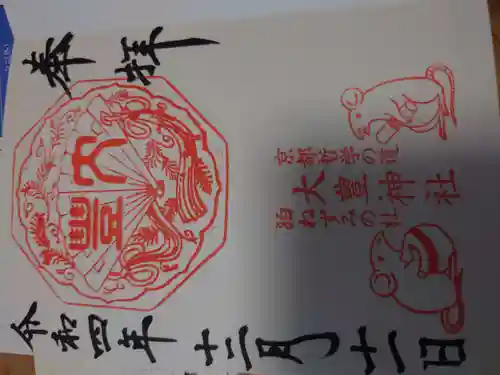 奉拝
大豊
京都哲学の道
大豊神社
狛ねずみの社
令和四年十二月十一日